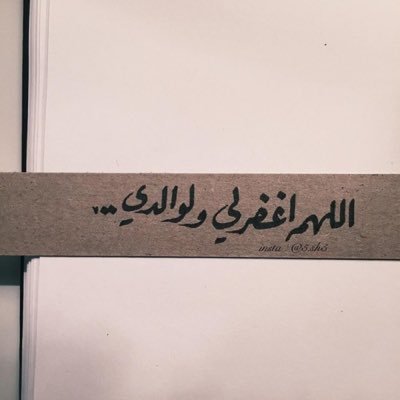 اللهم اغفر لي ولوالدي ...
insta : @5.sh5